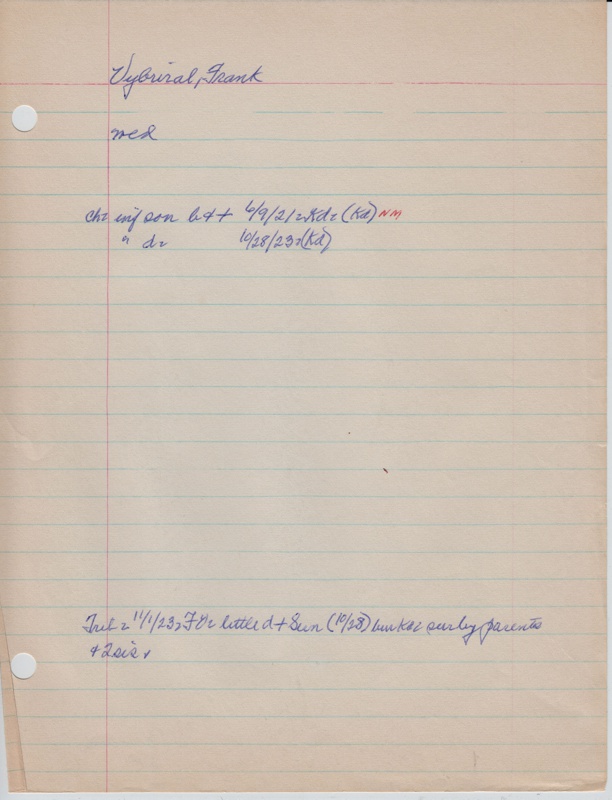 Vybiral, Frank
med
ch= inf son b & + 6/9/21= Kd= (Kd) NM
" d= 10/28/23= (Kd)
Trib= 11/1/23= F V= little d + Sun (10/28) bur Kd= sur by parents
& 2 sis.